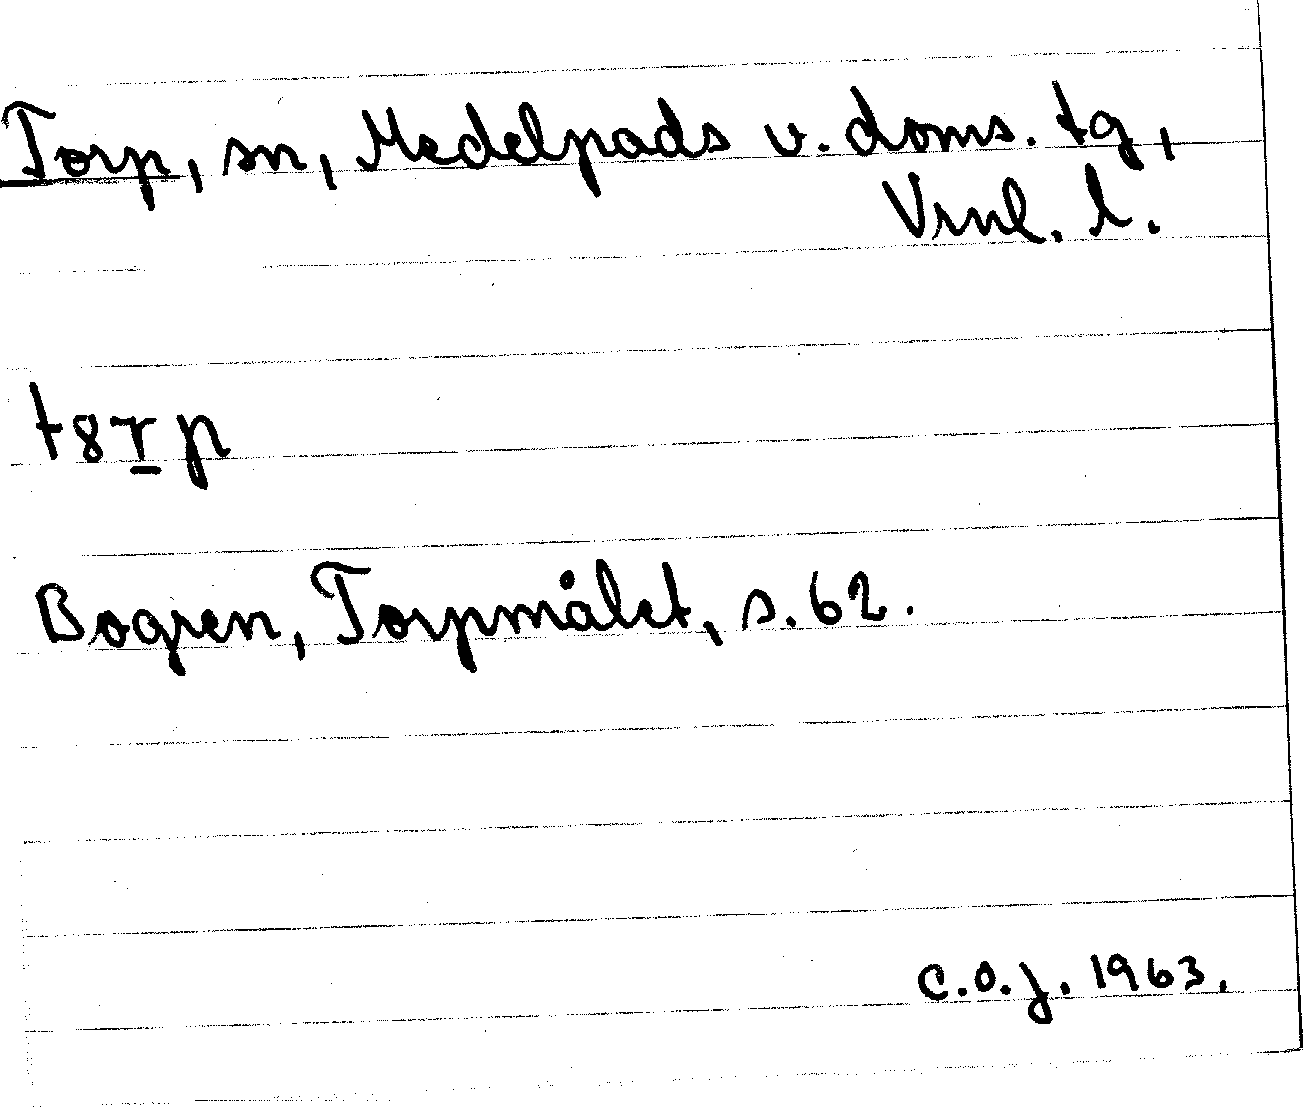 Torp, sn, Medelpads v. doms. tg,
Vrnl. l.
t8rp
Bogren, Torpmålet, s. 62.
C.O.J. 1963.